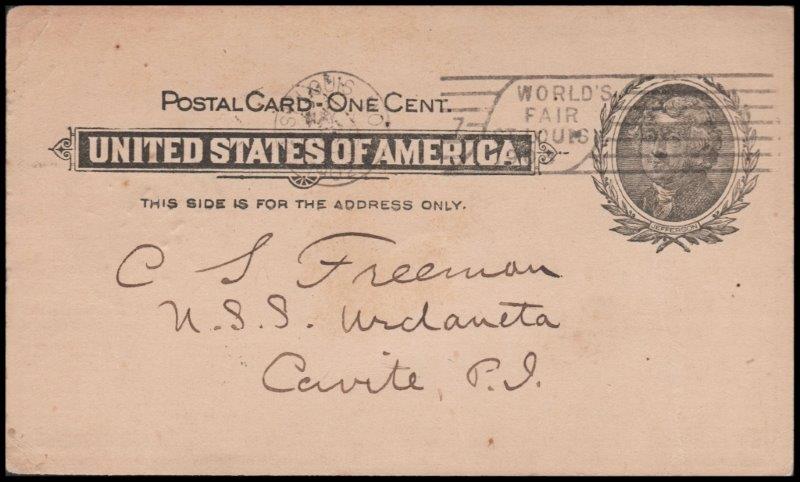 POSTAL CARD-ONE CENT.
UNITED STATES OF AMERICA.
THIS SIDE IS FOR THE ADDRESS ONLY.
ST. LOUIS
WORLD'S
FAIR
ST. LOUIS
JEFFERSON
C S Freeman
U.S.S. Urdaneta
Cavite, P.I.